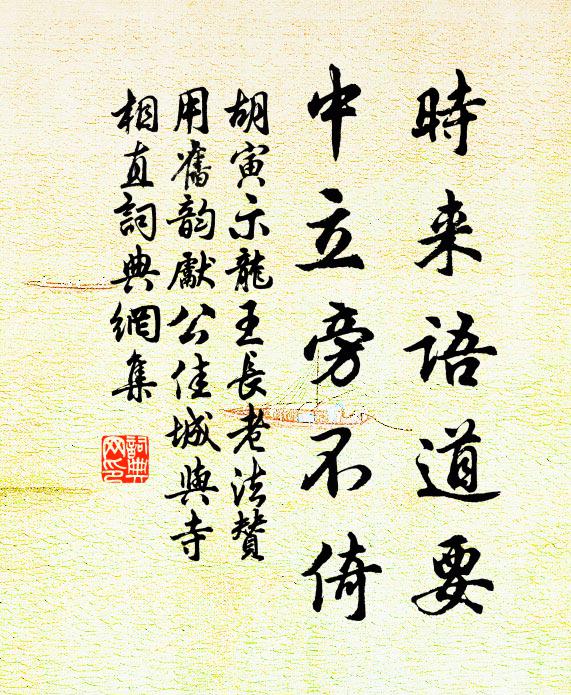 時来語道要
中立旁不倚
胡寅示龍王長老法贊
用舊韵獻公佳城與寺
相直詞典網集
詞典网印